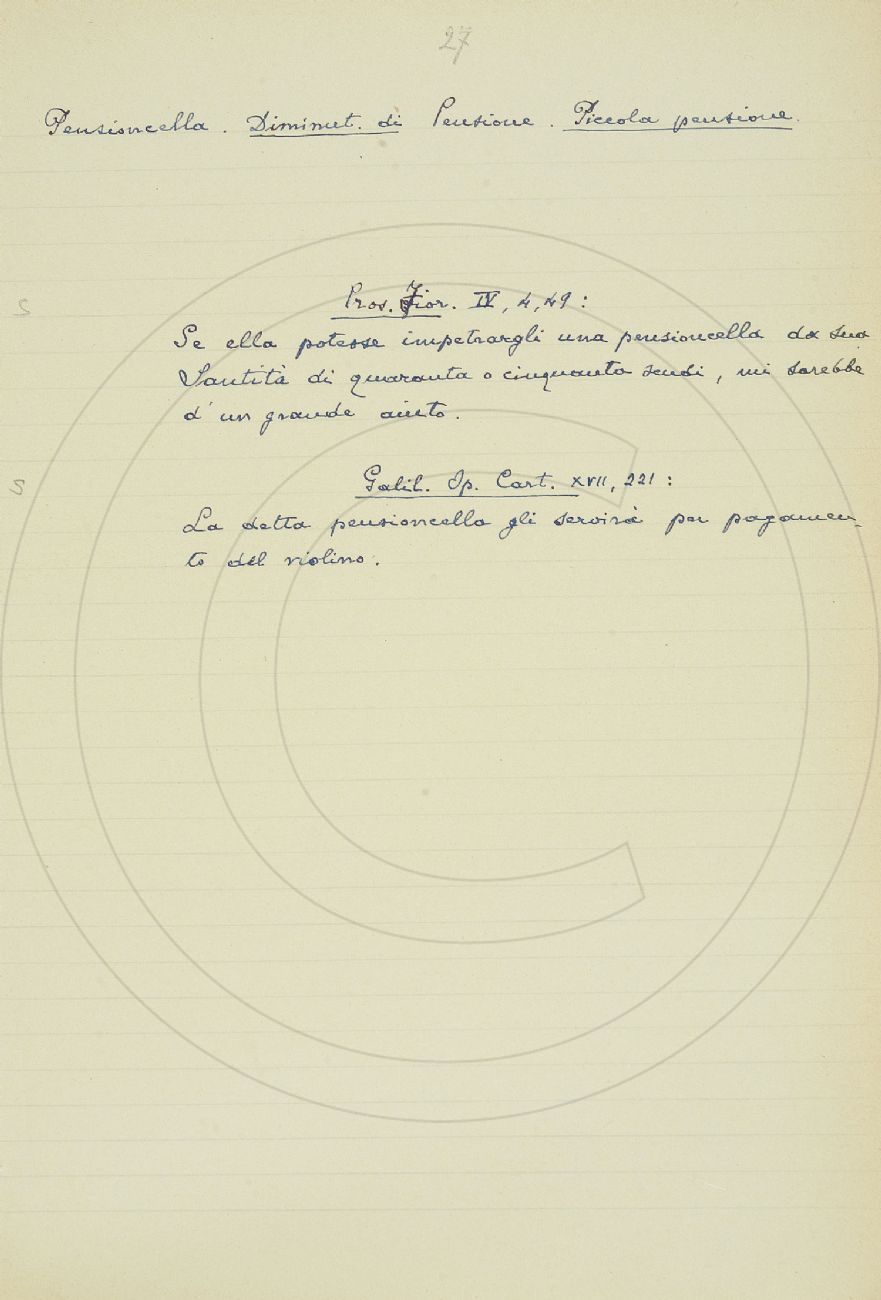 27
Pensioncella. Diminut. di Pensione. Piccola pensione.
Pros. Fior. IV, 4, 49:
S
Se ella potesse impetrargli una pensioncella da sua
Santità di quaranta o cinquanta scudi, mi sarebbe
d'un grande aiuto.
Galil. Op. Cart. XVII, 221:
S
La detta pensioncella gli servirà per pagamen-
to del violino.